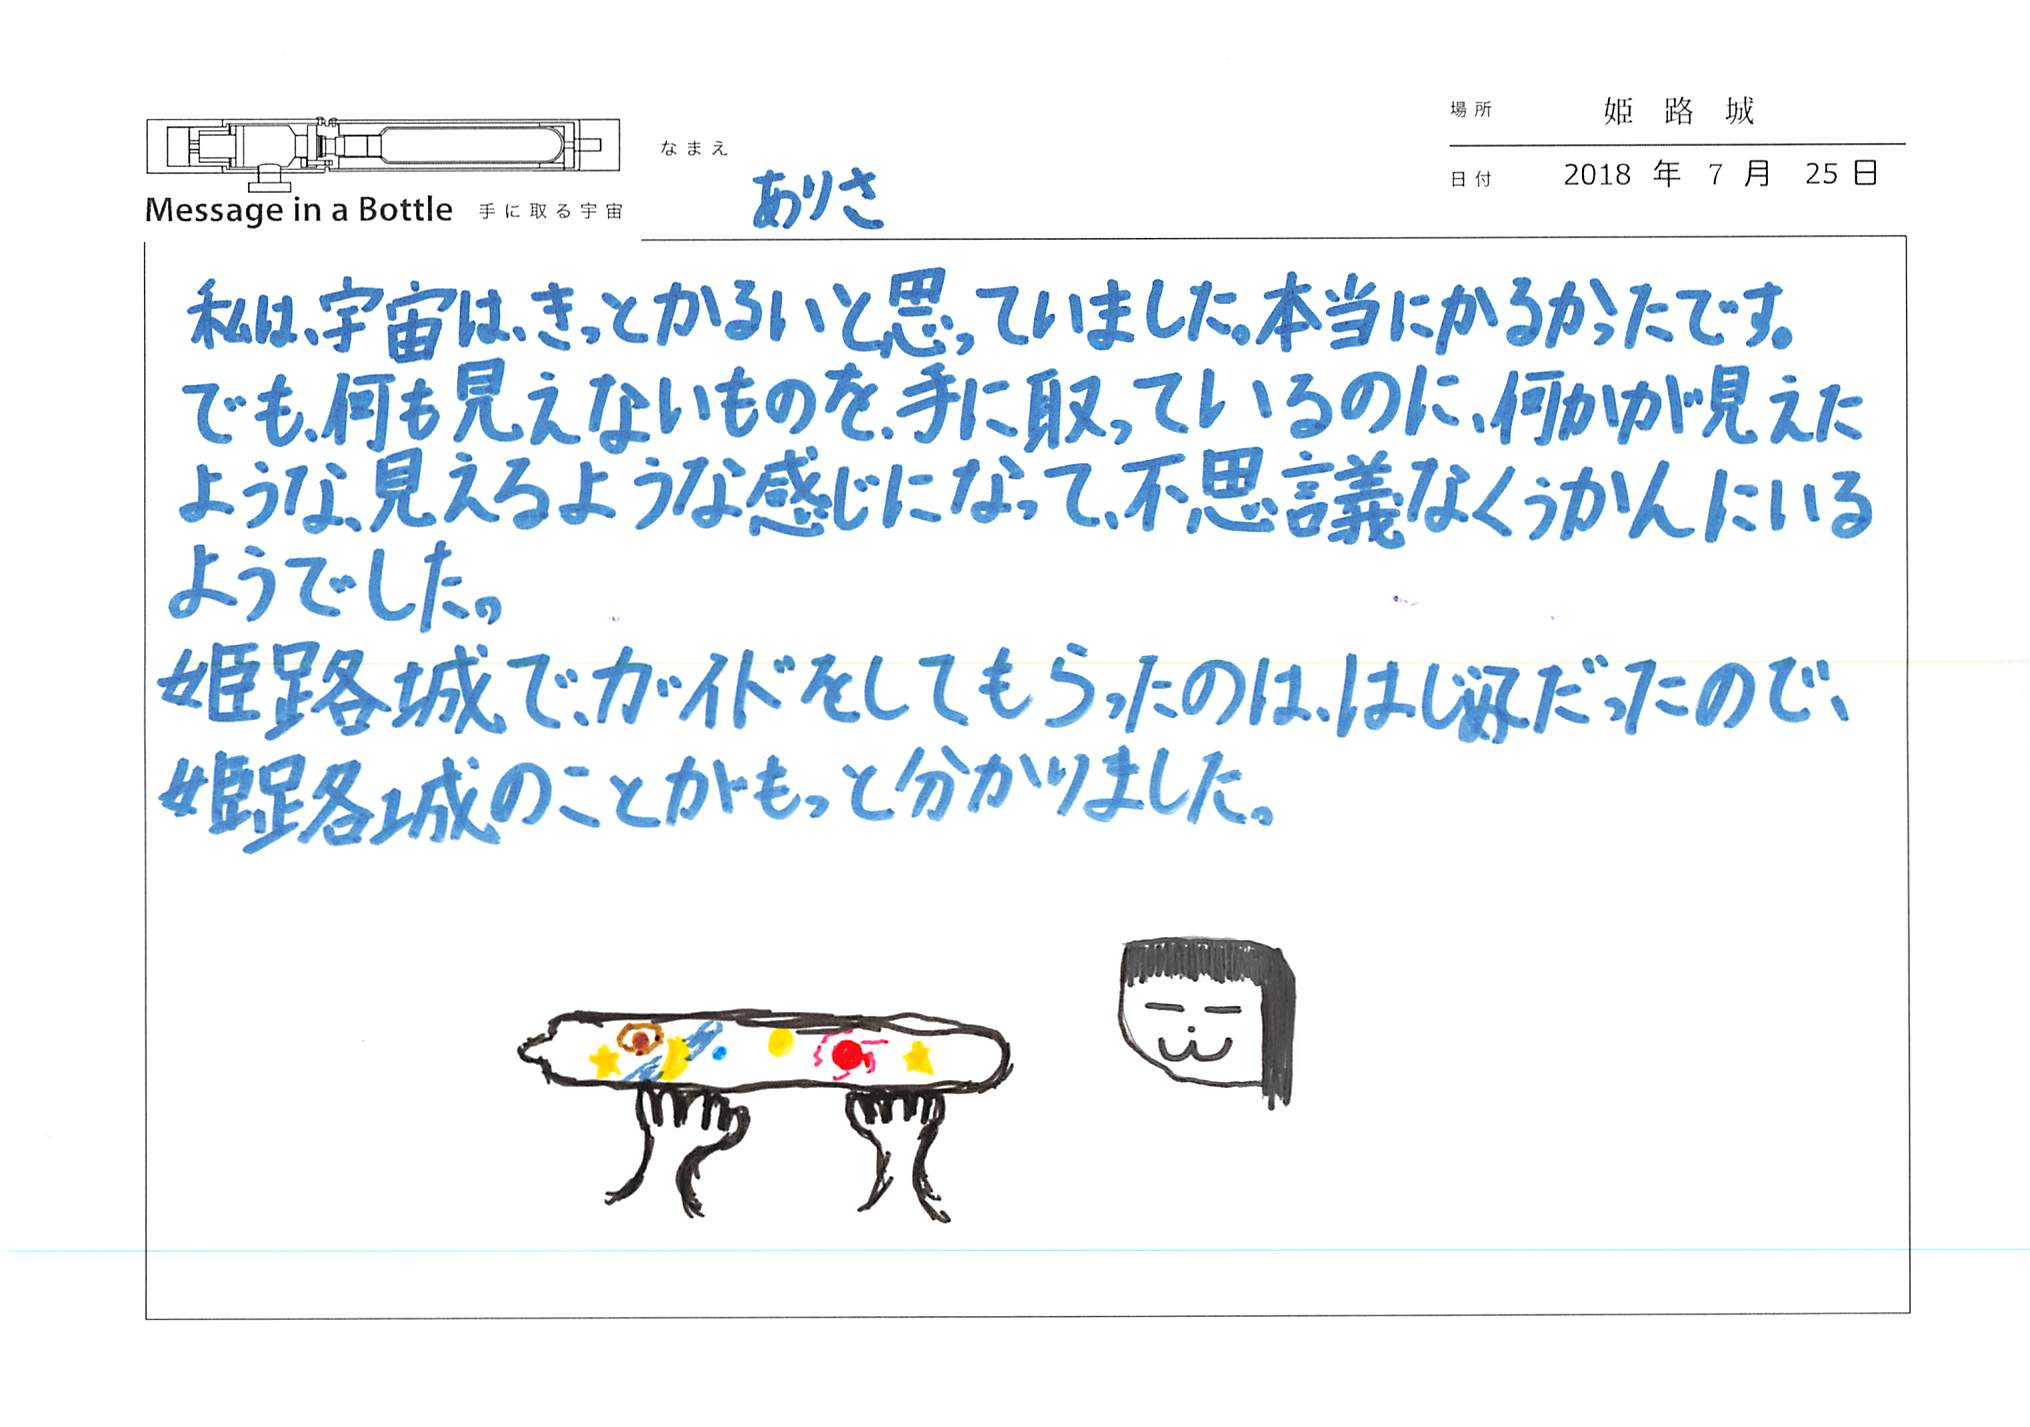 場所 姫路城
なまえ
日付 2018 年 7 月 25 日
Message in a Bottle 手に取る宇宙
ありさ
私は、宇宙は、きっとかるいと思っていました。本当にかるかったです。
でも、何も見えないものを、手に取っているのに、何かが見えた
ような、見えるような感じになって、不思議なくうかんにいる
ようでした。
姫路城で、ガイドをしてもらったのは、はじめてだったので、
姫路城のことがもっと分かりました。